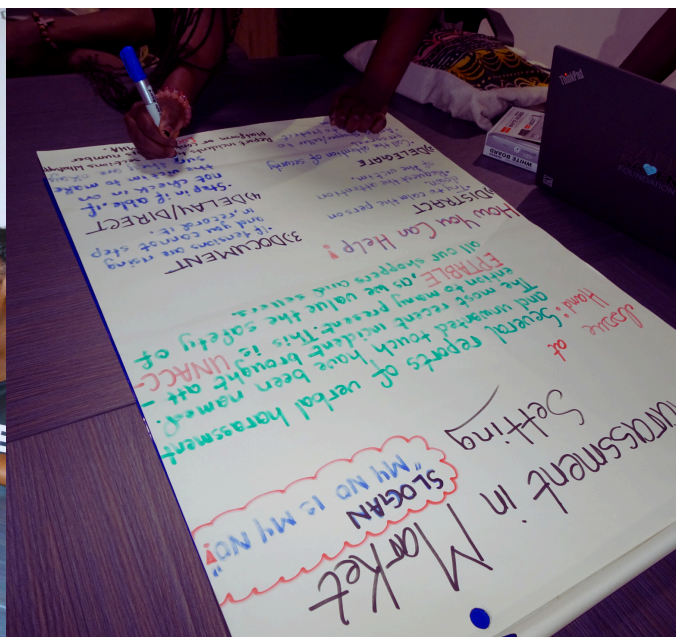 Harassment in Market
Setting
SLOGAN
"MY NO IS MY NO!"
Issue at
Hand:
Several reports of verbal harassment
and unwanted touch, have been named.
The most recent incident brought att-
ention to many present. This is UNACC-
EPTABLE, as we value the safety of
all our shoppers and sellers.
How You Can Help!
DISTRACT
Try to calm the person
the attention
2)DELEGATE
Call the attention of security
3)DOCUMENT
-If tensions are rising
and you cannot step
in record it.
4)DELAY/DIRECT
-Step in if able. If
not check in on
to make
Report incidents
number
Platform or
ThinkPad
WHITE BOARD
FOUNDATION